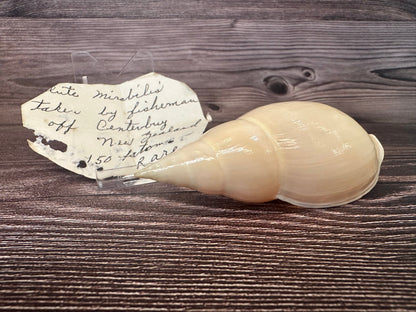 cute Mirabilis
taken by fisherman
off Centerbuy
New Zealand
150 fatoms
Rare